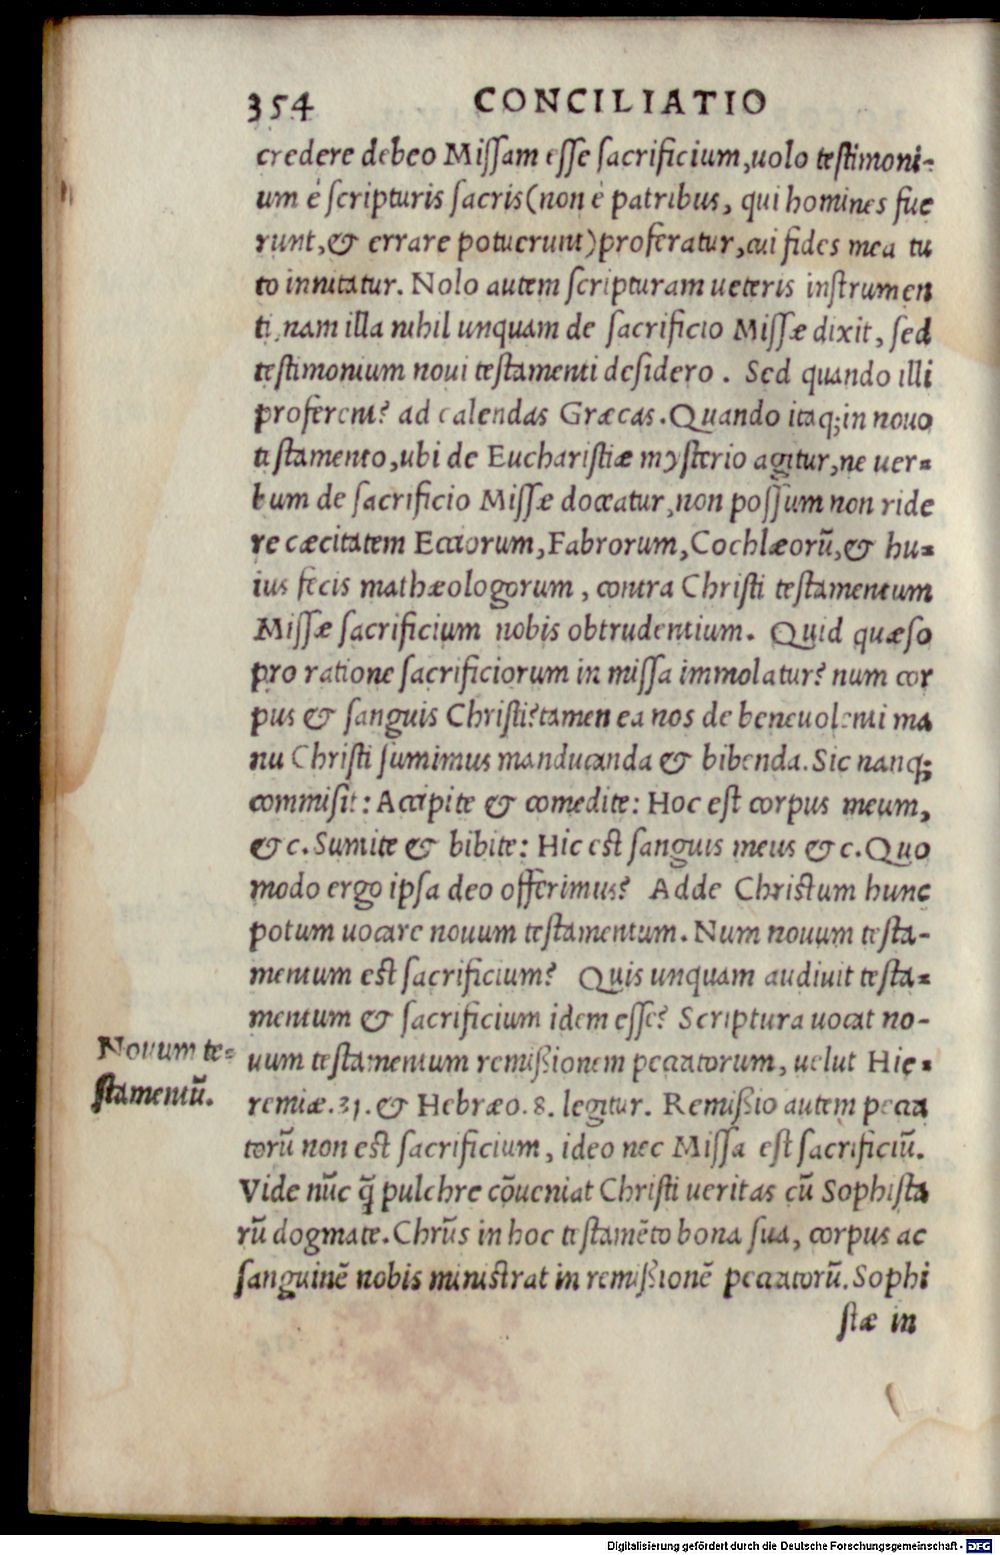 354 CONCILIATIO
credere debeo Missam esse sacrificium, uolo testimoni-
um è scripturis sacris (non è patribus, qui homines fue
runt, & errare potuerunt) proferatur, cui fides mea tu
to innitatur. Nolo autem scripturam ueteris instrumen
ti, nam illa nihil unquam de sacrificio Missæ dixit, sed
testimonium noui testamenti desidero. Sed quando illi
proferent? ad calendas Græcas. Quando itaq; in nouo
testamento, ubi de Eucharistiæ mysterio agitur, ne uer-
bum de sacrificio Missæ doceatur, non possum non ride
re cæcitatem Ecciorum, Fabrorum, Cochlæorũ, & hu-
ius fecis mathæologorum, contra Christi testamentum
Missæ sacrificium nobis obtrudentium. Quid quæso
pro ratione sacrificiorum in missa immolatur? num cor
pus & sanguis Christi? tamen ea nos de beneuolenti ma
nu Christi sumimus manducanda & bibenda. Sic nanq;
commisit: Accipite & comedite: Hoc est corpus meum,
&c. Sumite & bibite: Hic est sanguis meus &c. Quo
modo ergo ipsa deo offerimus? Adde Christum hunc
potum uocare nouum testamentum. Num nouum testa-
mentum est sacrificium? Quis unquam audiuit testa-
mentum & sacrificium idem esse? Scriptura uocat no-
uum testamentum remißionem peccatorum, uelut Hie-
remiæ. 31. & Hebræo. 8. legitur. Remißio autem pecca
torũ non est sacrificium, ideo nec Missa est sacrificiũ.
Vide nũc q̃ pulchre cõueniat Christi ueritas cũ Sophista
rũ dogmate. Chrũs in hoc testamẽto bona sua, corpus ac
sanguinẽ nobis ministrat in remißionẽ peccatorũ. Sophi
stæ in
Nouum te-
stamentũ.
Digitalisierung gefördert durch die Deutsche Forschungsgemeinschaft - DFG